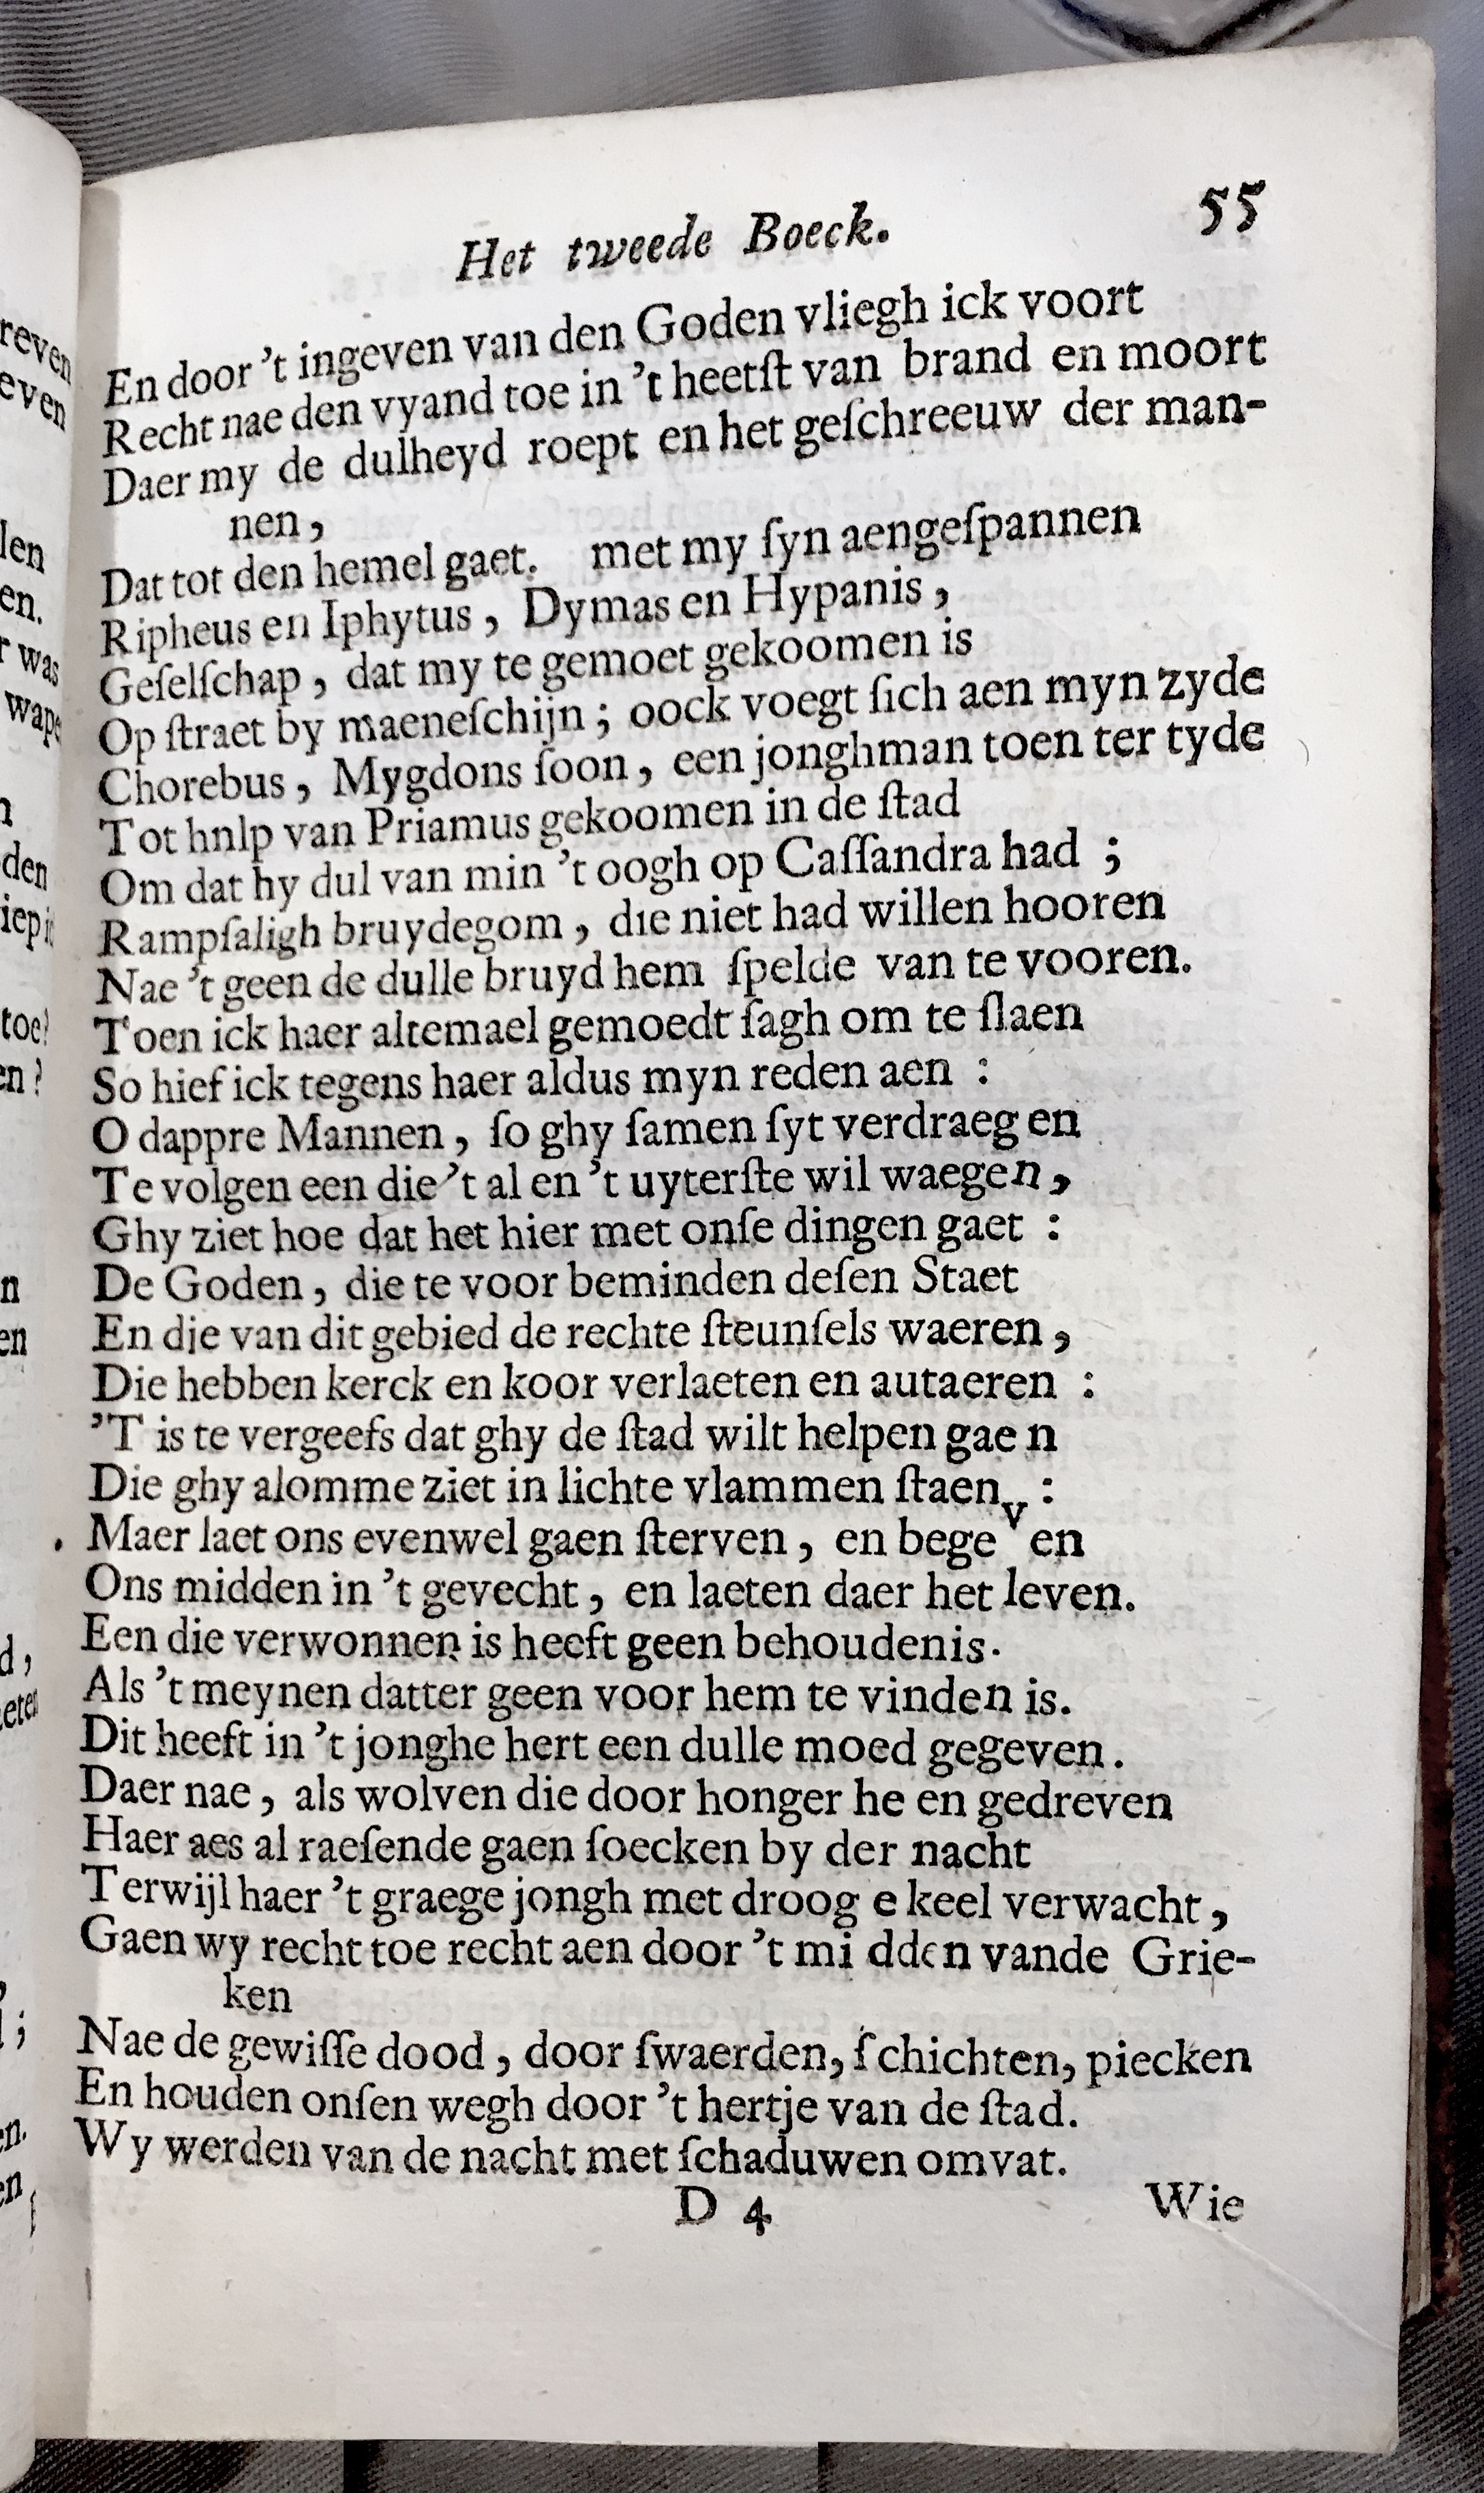 Het tweede Boeck. 55
En door 't ingeven van den Goden vliegh ick voort
Recht nae den vyand toe in 't heetſt van brand en moort
Daer my de dulheyd roept en het geſchreeuw der man-
nen,
Dat tot den hemel gaet. met my ſyn aengeſpannen
Ripheus en Iphytus, Dymas en Hypanis,
Geſelſchap, dat my te gemoet gekoomen is
Op ſtraet by maeneſchijn; oock voegt ſich aen myn zyde
Chorebus, Mygdons ſoon, een jonghman toen ter tyde
Tot hnlp van Priamus gekoomen in de ſtad
Om dat hy dul van min 't oogh op Caſſandra had;
Rampſaligh bruydegom, die niet had willen hooren
Nae 't geen de dulle bruyd hem ſpelde van te vooren.
Toen ick haer altemael gemoedt ſagh om te ſlaen
So hief ick tegens haer aldus myn reden aen:
O dappre Mannen, ſo ghy ſamen ſyt verdraeg en
Te volgen een die 't al en 't uyterſte wil waegen,
Ghy ziet hoe dat het hier met onſe dingen gaet:
De Goden, die te voor beminden deſen Staet
En die van dit gebied de rechte ſteunſels waeren,
Die hebben kerck en koor verlaeten en autaeren:
'T is te vergeefs dat ghy de ſtad wilt helpen gae n
Die ghy alomme ziet in lichte vlammen ſtaen:
Maer laet ons evenwel gaen ſterven, en bege v en
Ons midden in 't gevecht, en laeten daer het leven.
Een die verwonnen is heeft geen behoudenis.
Als 't meynen datter geen voor hem te vinden is.
Dit heeft in 't jonghe hert een dulle moed gegeven.
Daer nae, als wolven die door honger he en gedreven
Haer aes al raeſende gaen ſoecken by der nacht
Terwijl haer 't graege jongh met droog e keel verwacht,
Gaen wy recht toe recht aen door 't mi dden vande Grie-
ken
Nae de gewiſſe dood, door ſwaerden, ſchichten, piecken
En houden onſen wegh door 't hertje van de ſtad.
Wy werden van de nacht met ſchaduwen omvat.
D 4 Wie